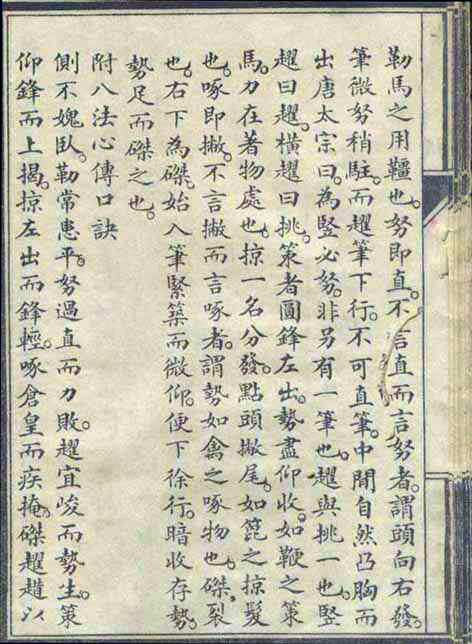 勒馬之用韁也。努即直。不言直而言努者。謂頭向右發。
筆微努稍駐。而趯筆下行。不可直筆。中間自然凸胸而
出。唐太宗曰。為豎必努。非另有一筆也。趯與挑一也。豎
趯曰趯。橫趯曰挑。策者圓鋒左出。勢盡仰收。如鞭之策
馬。力在著物處也。掠一名分發。點頭撇尾。如篦之掠髮
也。啄即撇。不言撇而言啄者。謂勢如禽之啄物也。磔裂
也。右下為磔。始入筆緊築而微仰。便下徐行。暗收存勢。
勢足而磔之也。
附八法心傳口訣
側不媿臥。勒常患平。努過直而力敗。趯宜峻而勢生。策
仰鋒而上揭。掠左出而鋒輕。啄倉皇而疾掩。磔趯趞以